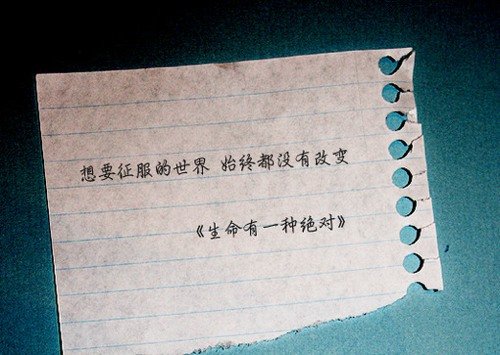 想要征服的世界 始终都没有改变
《生命有一种绝对》